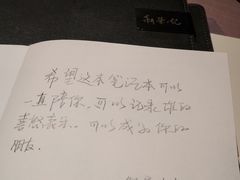 希望这本笔记本可以
一直陪你、可以记录你的
喜怒哀乐、可以成为你的
朋友.